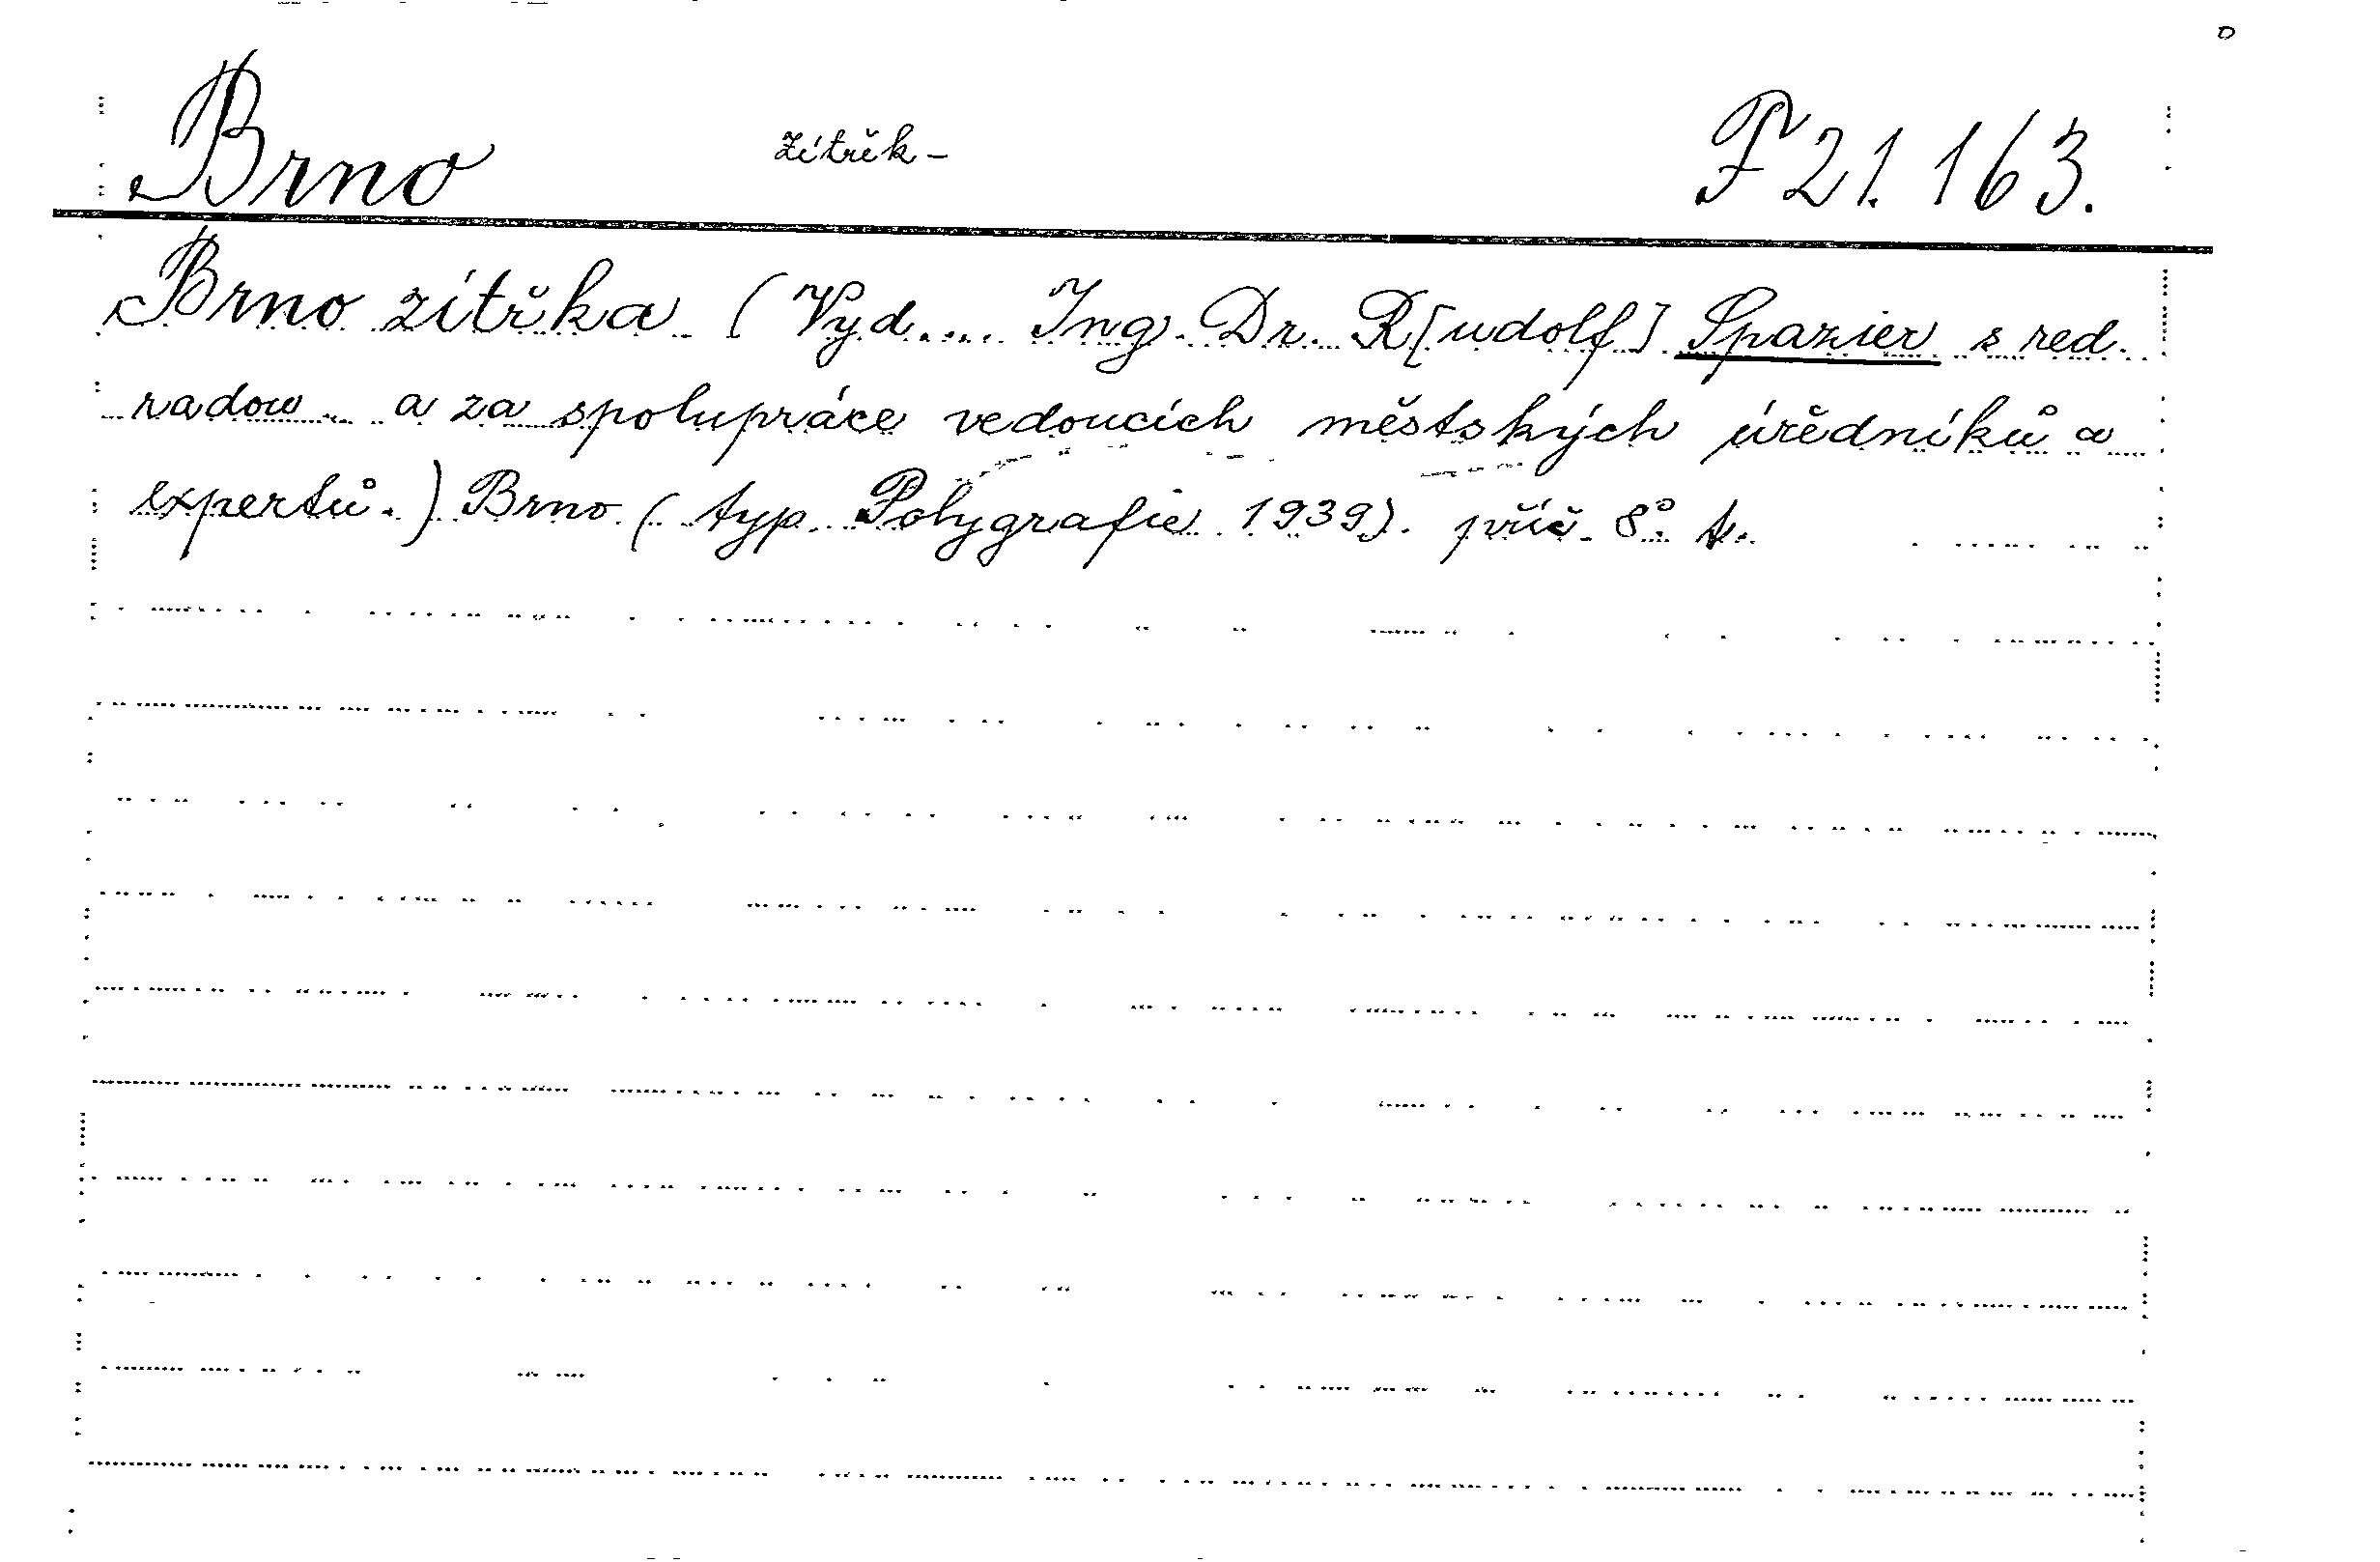 Brno zítřěk- F 21.163.
Brno zítřka (Vyd.... Ing. Dr. R[udolf] Spazier s red.
radou.. a za spolupráce vedoucích městských úředníků a
expertů.) Brno (typ. Polygrafie 1939). příč. 8° t.